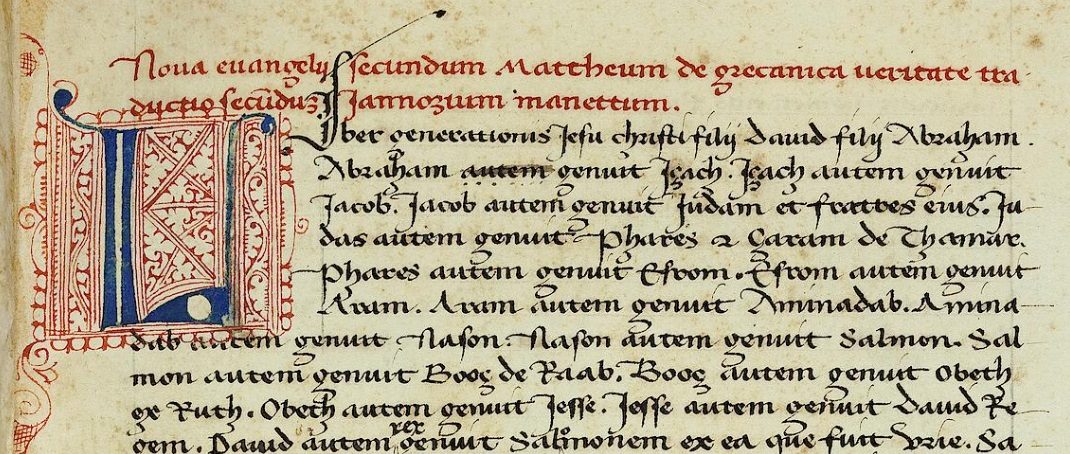 Noua euangelij secundum Mattheum de grecanica ueritate tra
ductio secūduz Jannozium manettum.
Liber generationis Jesu christi filij dauid filij Abraham.
Abraham autem genuit Içach. Içach autem genuit
Jacob. Jacob autem genuit Judam et fratres eius. Ju
das autem genuit Phares et Çaram de Thamar.
Phares autem genuit Esrom. Esrom autem genuit
Aram. Aram autem genuit Aminadab. Amina
dab autem genuit Nason. Nason autem genuit Salmon. Sal
mon autem genuit Booç de Raab. Booç autem genuit Obeth
ex Ruth. Obeth autem genuit Jesse. Jesse autem genuit Dauid Re
gem. Dauid autem rex genuit Salomonem ex ea que fuit Vrie. Sa